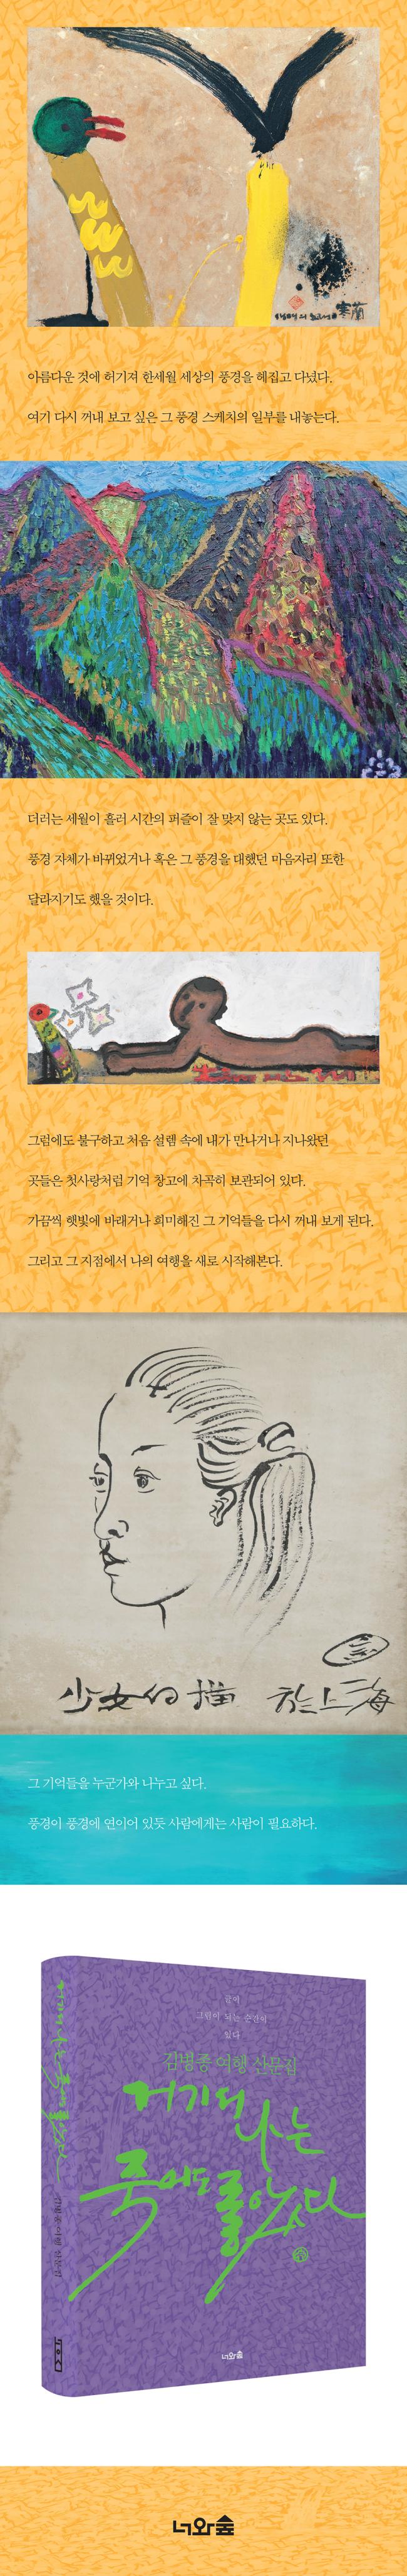 寒蘭
아름다운 것에 허기져 한세월 세상의 풍경을 헤집고 다녔다.
여기 다시 꺼내 보고 싶은 그 풍경 스케치의 일부를 내놓는다.
더러는 세월이 흘러 시간의 퍼즐이 잘 맞지 않는 곳도 있다.
풍경 자체가 바뀌었거나 혹은 그 풍경을 대했던 마음자리 또한
달라지기도 했을 것이다.
그럼에도 불구하고 처음 설렘 속에 내가 만나거나 지나왔던
곳들은 첫사랑처럼 기억 창고에 차곡히 보관되어 있다.
가끔씩 햇빛에 바래거나 희미해진 그 기억들을 다시 꺼내 보게 된다.
그리고 그 지점에서 나의 여행을 새로 시작해본다.
少女 描 於上海
그 기억들을 누군가와 나누고 싶다.
풍경이 풍경에 연이어 있듯 사람에게는 사람이 필요하다.
글이
그림이 되는 순간이
있다
김병종 여행 산문집
거기서
나는
죽어도
좋았다
너와숲
거기서 나는 죽어도 좋았다
김병종 여행 산문집
너와숲